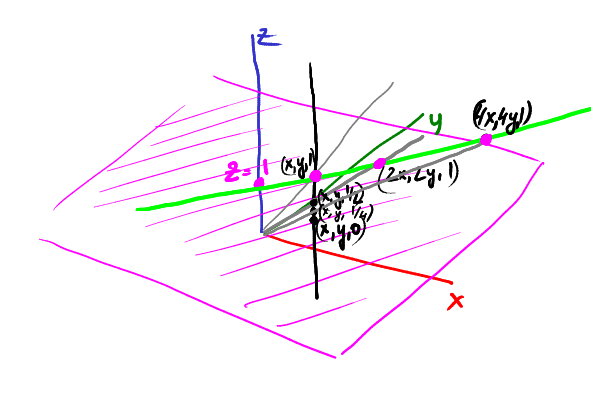 z
y
(4x,4y,1)
z=1
(x,y,1)
(2x,2y,1)
(x,y,1/2)
(x,y,1/4)
(x,y,0)
x